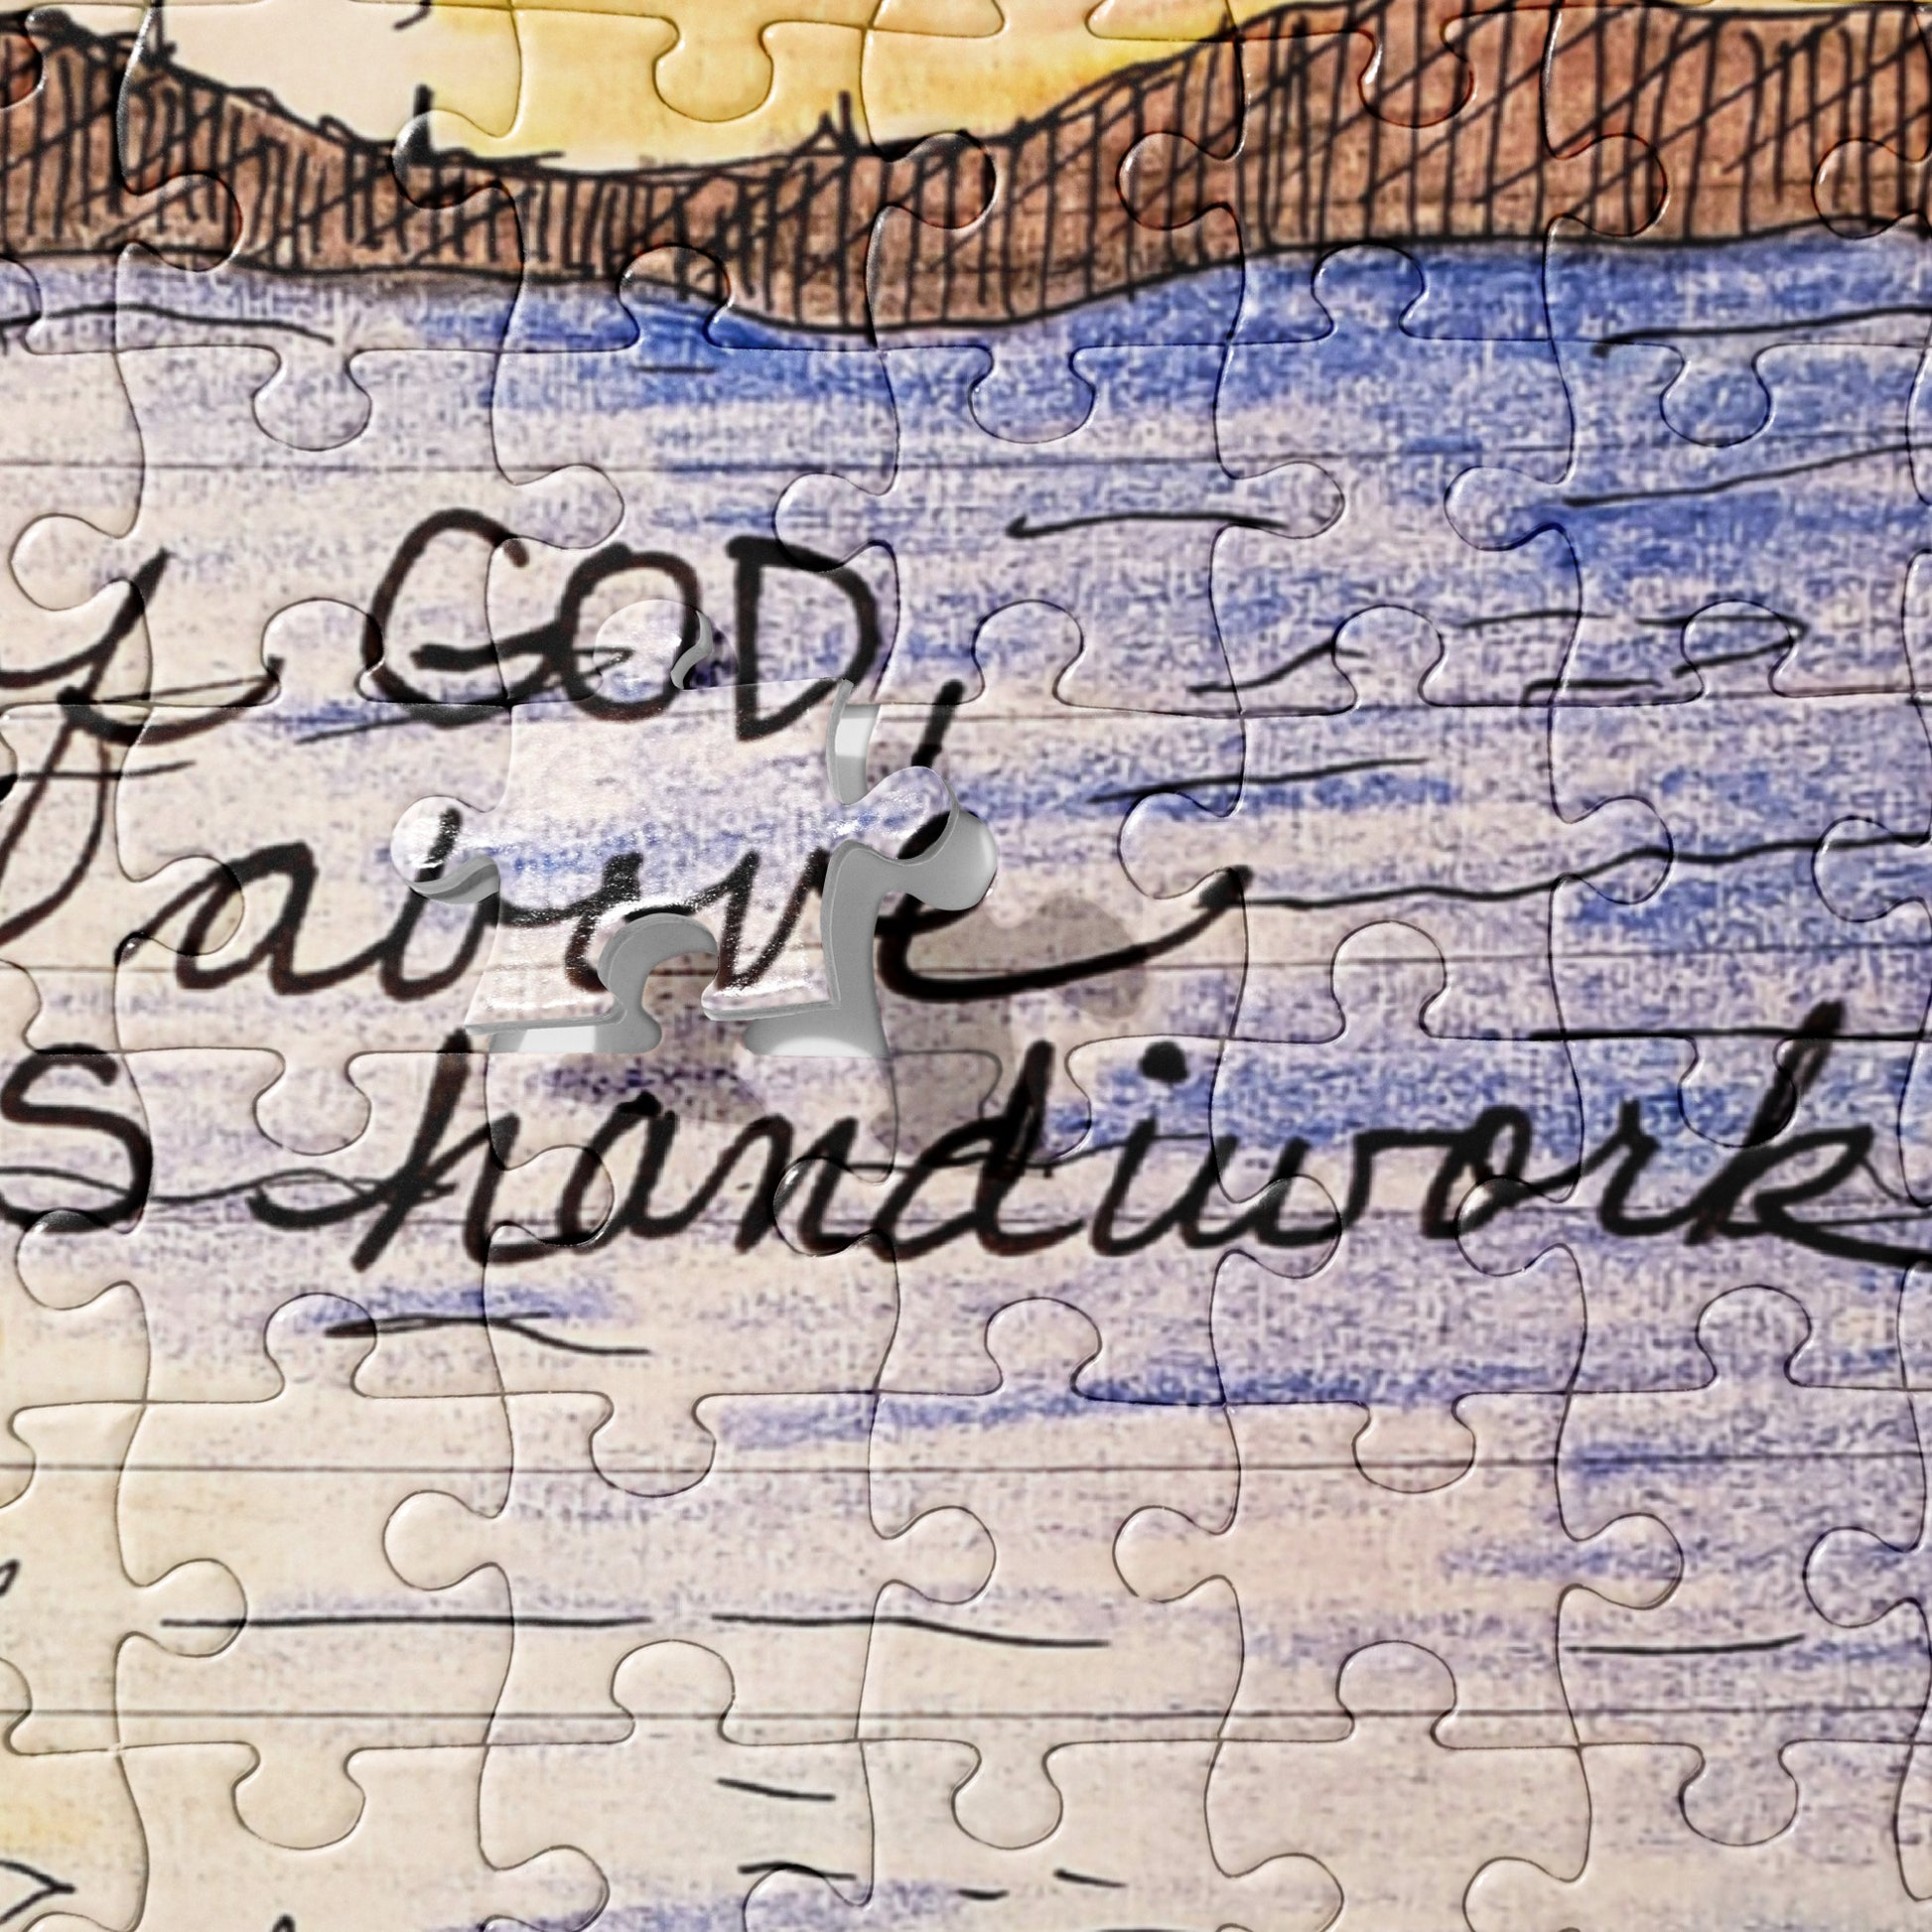 f GOD,
above
S handiwork